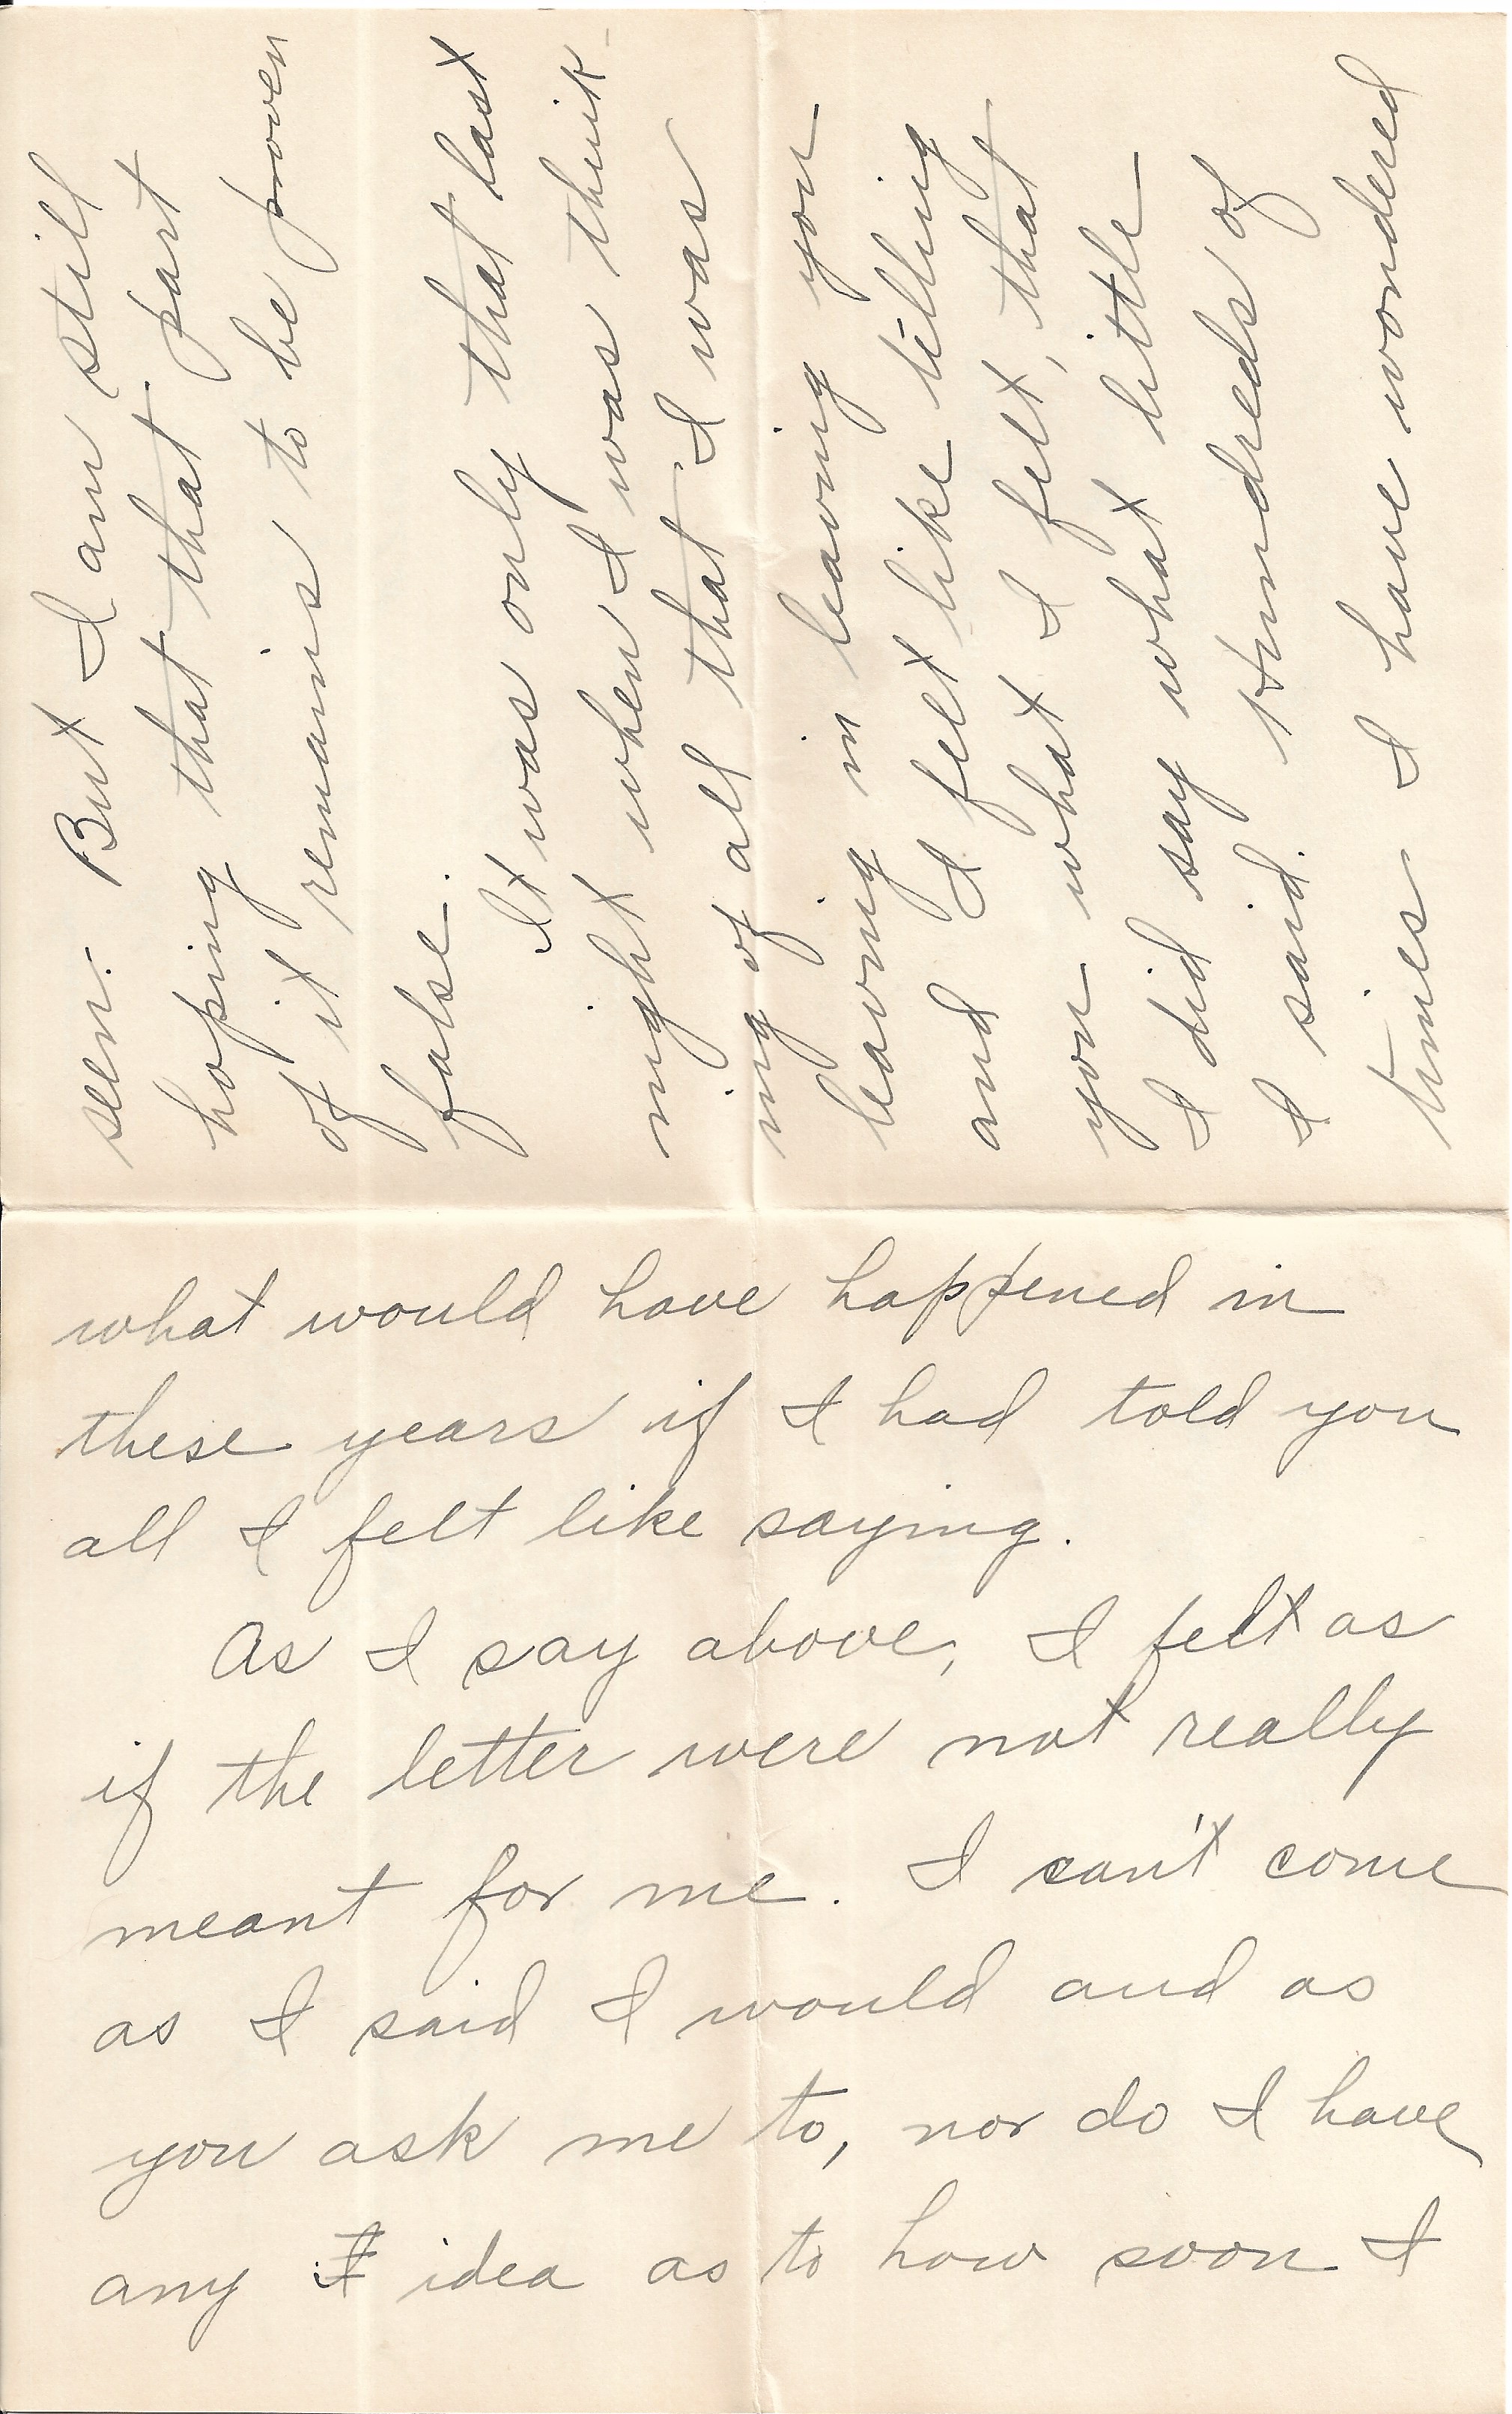 seen. But I am still
hoping that that part
of it remains to be proven
false.
It was only that last
night when I was think-
ing of all that I was
leaving in leaving you
and I felt like telling
you what I felt, that
I did say what little
I said. Hundreds of
times I have wondered
what would have happened in
these years if I had told you
all I felt like saying.
As I say above, I felt as
if the letter were not really
meant for me. I can't come
as I said I would and as
you ask me to, nor do I have
any I idea as to how soon I